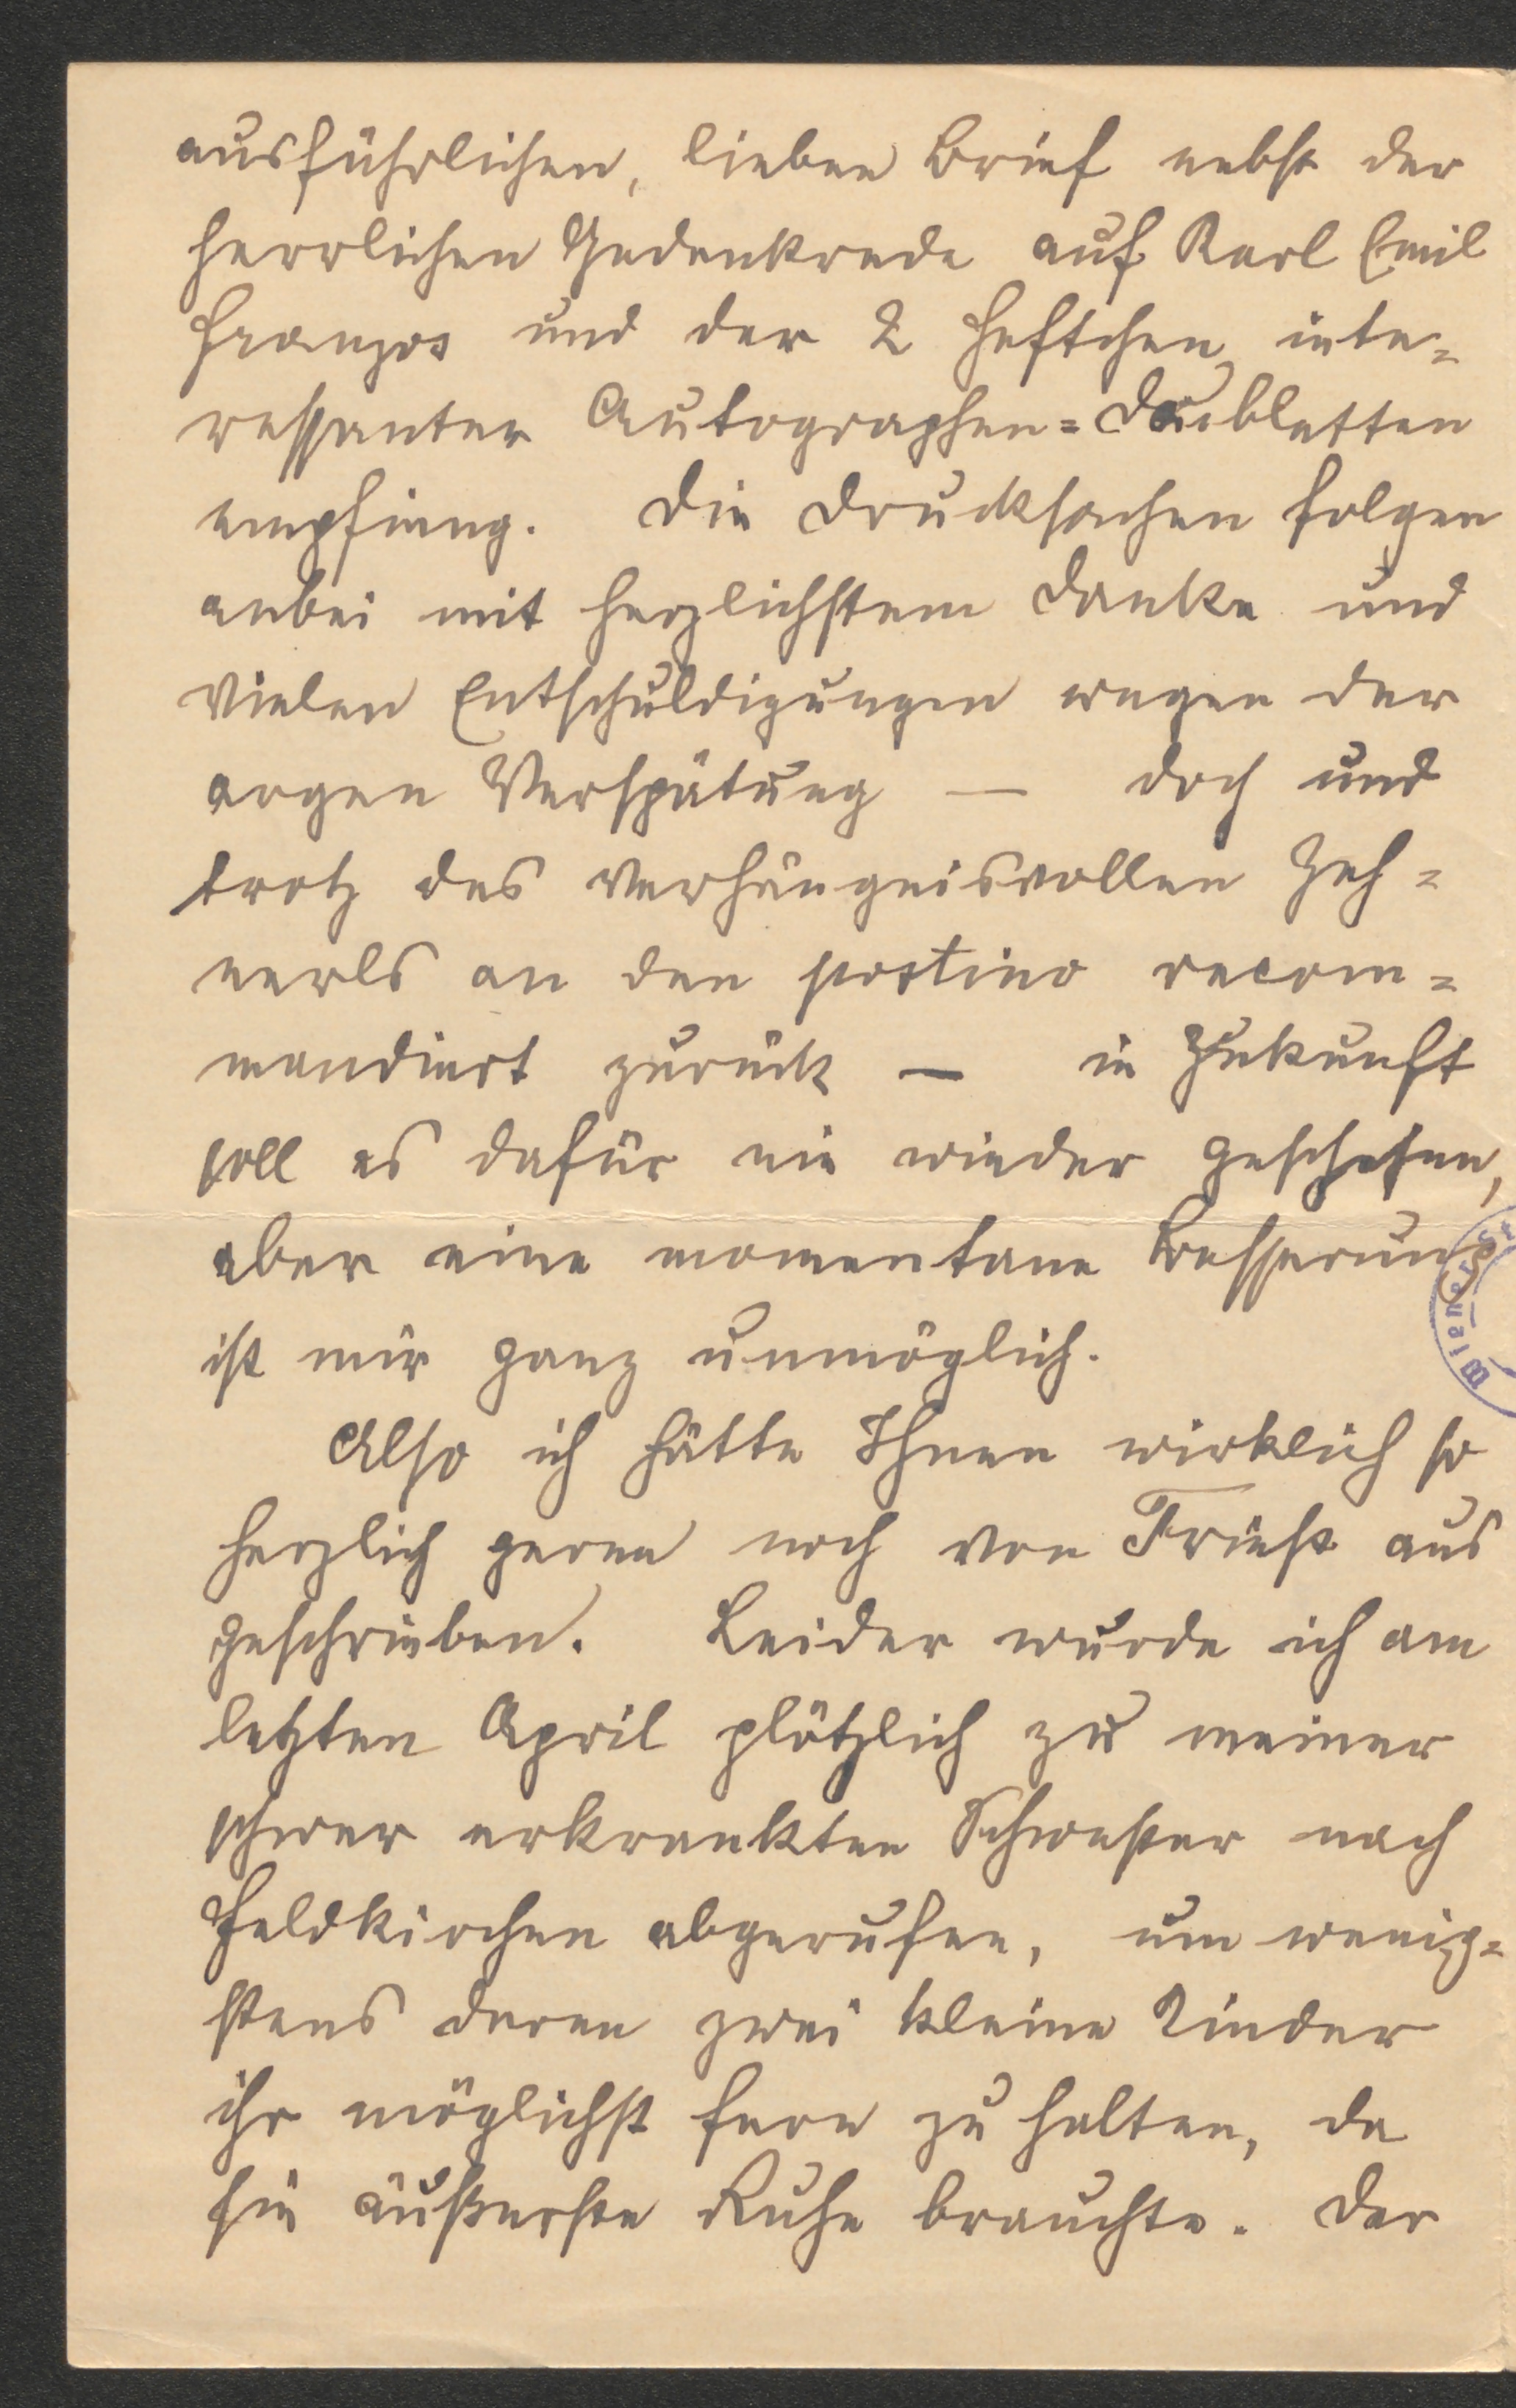 ausführlichen, lieben Brief nebst der
herrlichen Gedenkrede auf Karl Emil
Franzos und der 2 Heftchen inte=
ressanter Autographen=Doubletten
empfieng. Die Drucksachen folgen
anbei mit herzlichstem Danke und
vielen Entschuldigungen wegen der
argen Verspätung — doch und
trotz des verhängnisvollen Zeh=
nerls an den postino recom=
mandiert zurück — in Zukunft
soll es dafür nie wieder geschehen,
aber eine momentane Besserung
ist mir ganz unmöglich.
Also ich hätte Ihnen wirklich so
herzlich geren noch von Triest aus
geschrieben. Leider wurde ich am
letzten April plötzlich zu meiner
schwer erkrankten Schwester nach
Feldkirchen abgerufen, um wenig=
stens deren zwei kleine Kinder
ihr möglichst fern zu halten, da
sie äußerste Ruhe brauchte. Der
Wiener